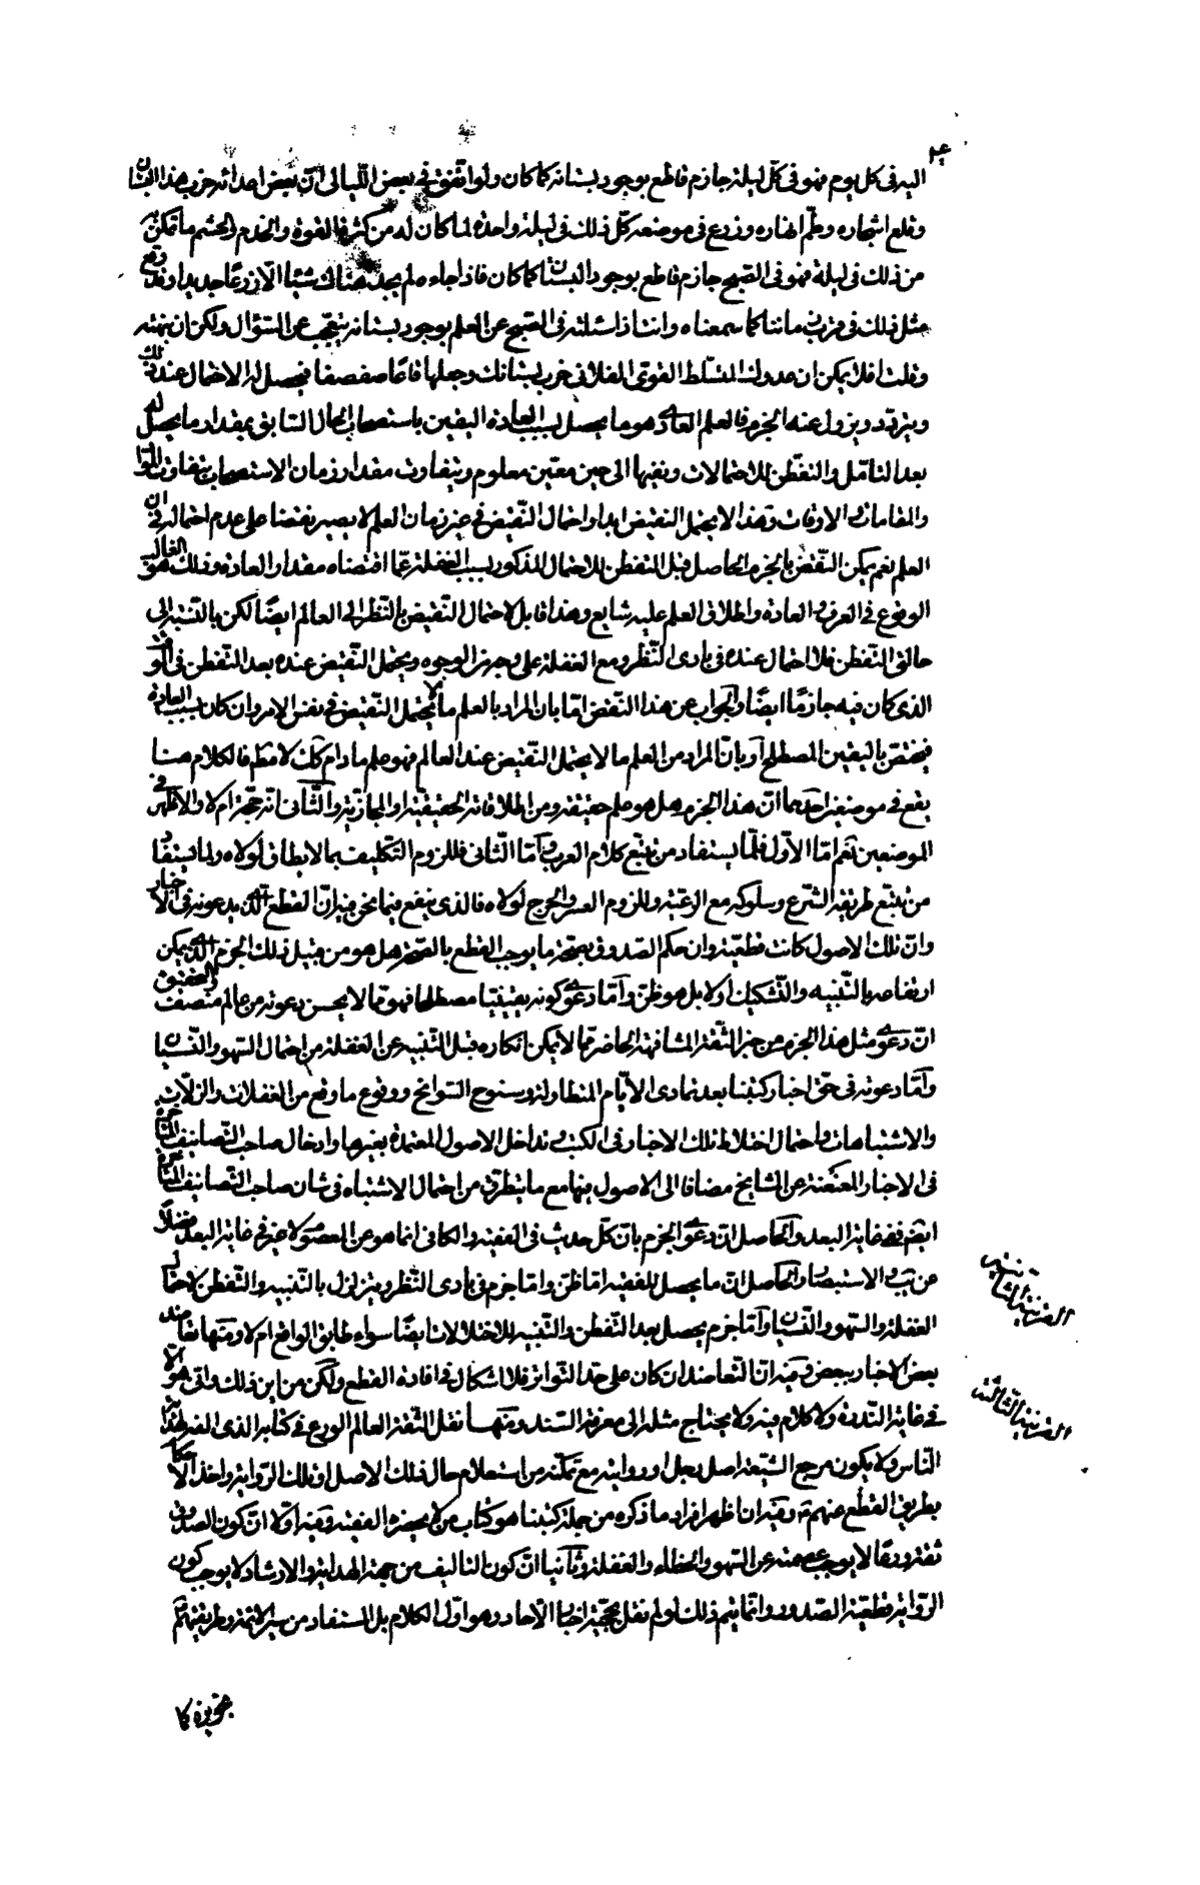 اليه في كل يوم فهو في كل ليلة جازم قاطع بوجود بستانه كما كان ولو اتفق في بعض الليالي ان بعض اعدائه خرب هذا البستان
وقلع اشجاره وطم انهاره وزرع في موضعه كل ذلك في ليلة واحدة لما كان له من كثرة القوة والخدم والحشم ما تمكن به
من ذلك في ليلة فهو في الصبح جازم قاطع بوجود البستان كما كان فاذا جاء ولم يجد هناك شيئا الا زرعا جديدا وقد وقع
مثل ذلك في قرب ماننا كما سمعناه وانت اذا سئلته في الصبح عن العلم بوجود بستانه يتعجب عن السؤال ولكن ان نبهته
وقلت افلا يمكن ان عدوك المتسلط القوي الفلاني خرب بستانك وجعلها قاعا صفصفا فيحصل له الاحتمال عند ذلك
ويتردد ويزول عنه الجزم فالعلم العادي هو ما يحصل بسبب العادة اليقين باستصحاب الحال السابق بمقدار ما يحصل له
بعد التامل والتفطن للاحتمالات ونفيها الى حين معين معلوم ويتفاوت مقدار زمان الاستصحاب بتفاوت المواد
والمقامات والاوقات وهذا لا يحتمل النقيض ابدا واحتمال النقيض في غير زمان العلم لا يصير نقضا على عدم احتماله في ان
العلم نعم يمكن النقض بالجزم الحاصل قبل التفطن للاحتمال المذكور بسبب الغفلة عما اقتضاه مقدار العادة وذلك هو الغالب
الوقوع في العرف والعادة واطلاق العلم عليه شايع وهذا قابل لاحتمال النقيض بالنظر الى العالم ايضا لكن بالنسبة الى
حالتي التفطن فلا احتمال عنده في بادى النظر ومع الغفلة على وجه من الوجوه ويحتمل النقيض عنده بعد التفطن في الوقت
الذي كان فيه جازما ايضا والجواب عن هذا النقض اما بان المراد بالعلم ما لا يحتمل النقيض في نفس الامر وان كان بسبب العادة
فيختص باليقين المصطلح او بان المراد من العلم ما لا يحتمل النقيض عند العالم فهو علم ما دام كك لا مطم فالكلام هنا
يقع في موضعين احدهما ان هذا الجزم هل هو علم حقيقة ومن اطلاقاته الحقيقية او المجازية والثاني انه حجة ام لا والاظهر في
الموضعين نعم اما الاول فلما يستفاد من تتبع كلام العرب واما الثاني فللزوم التكليف بما لا يطاق لولاه ولما يستفاد
من تتبع طريقة الشرع وسلوكه مع الرعية وللزوم العسر والحرج لولاه فالذي ينفع فيما نحن فيه ان القطع الذي يدعونه في الاخبار
وان تلك الاصول كانت قطعية وان حكم الصدوق بصحة ما يوجب القطع بالصحة هل هو من قبيل ذلك الجزم الذي يمكن
ارتفاعه بالتنبيه والتشكيك او لا بل هو ظن واما دعوى كونه يقينيا مصطلحا فهو مما لا يحسن دعوته من عالم منصف والتحقيق
ان دعوى مثل هذا الجزم من خبر الثقة المشافهة الحاضر مما لا يمكن انكاره قبل التنبيه عن الغفلة من احتمال السهو والنسيان
واما دعوته في حق اخبار كتبنا بعد تمادى الايام المتطاولة وسنوح السوانح ووقوع ما وقع من الغفلات والزلات
والاشتباهات واحتمال اختلاط تلك الاخبار في الكتب وتداخل الاصول المعتمدة بغيرها وادخال صاحب التصانيف المتاخرة
في الاخبار المعنعنة عن المشايخ مضافا الى الاصول بينها مع ما يتطرق من احتمال الاشتباه في شان صاحب التصانيف المتاخرة
ايضم ففي غاية البعد والحاصل ان دعوى الجزم بان كل حديث في الفقيه والكافي انما هو عن المعصوم لا غير في غاية البعد فضلا
عن ... الاستبصار والحاصل ان ما يحصل للفقيه اما ظن واما جزم في بادى النظر ويتزلزل بالتنبيه والتفطن لاحتمال
الغفلة والسهو والنسيان واما جزم يحصل بعد التفطن والتنبيه للاختلالات ايضا سواء طابق الواقع ام لا ومنها تعاضد
بعض الاخبار ببعض وفيه ان التعاضد ان كان على حد التواتر فلا اشكال في افادة القطع ولكن من اين ذلك وانى هو الا
في غاية الندرة ولا كلام فيه ولا يحتاج مثله الى معرفة السند ومنها نقل الثقة العالم الورع في كتابه الذي الفه لهداية
الناس ولا يكون مرجع الشيعة اصل رجل او روايته مع تمكنه من استعلام حال ذلك الاصل او تلك الرواية واخذ الاحكام
بطريق القطع عنهم ع وفيه ان اظهر افراد ما ذكره من جملة كتبنا هو كتاب من لا يحضره الفقيه وفيه اولا ان كون الصدوق
ثقة ورعا لا يوجب عصمته عن السهو والخطاء والغفلة وثانيا ان كون التاليف من جهة الهداية والارشاد لا يوجب كون
الرواية قطعية الصدور وانما يتم ذلك لو لم نقل بحجية اخبار الآحاد وهو اول الكلام بل المستفاد من سيرة الائمة وطريقتهم
تجويزه كما
القرينة الثانية
القرينة الثالثة